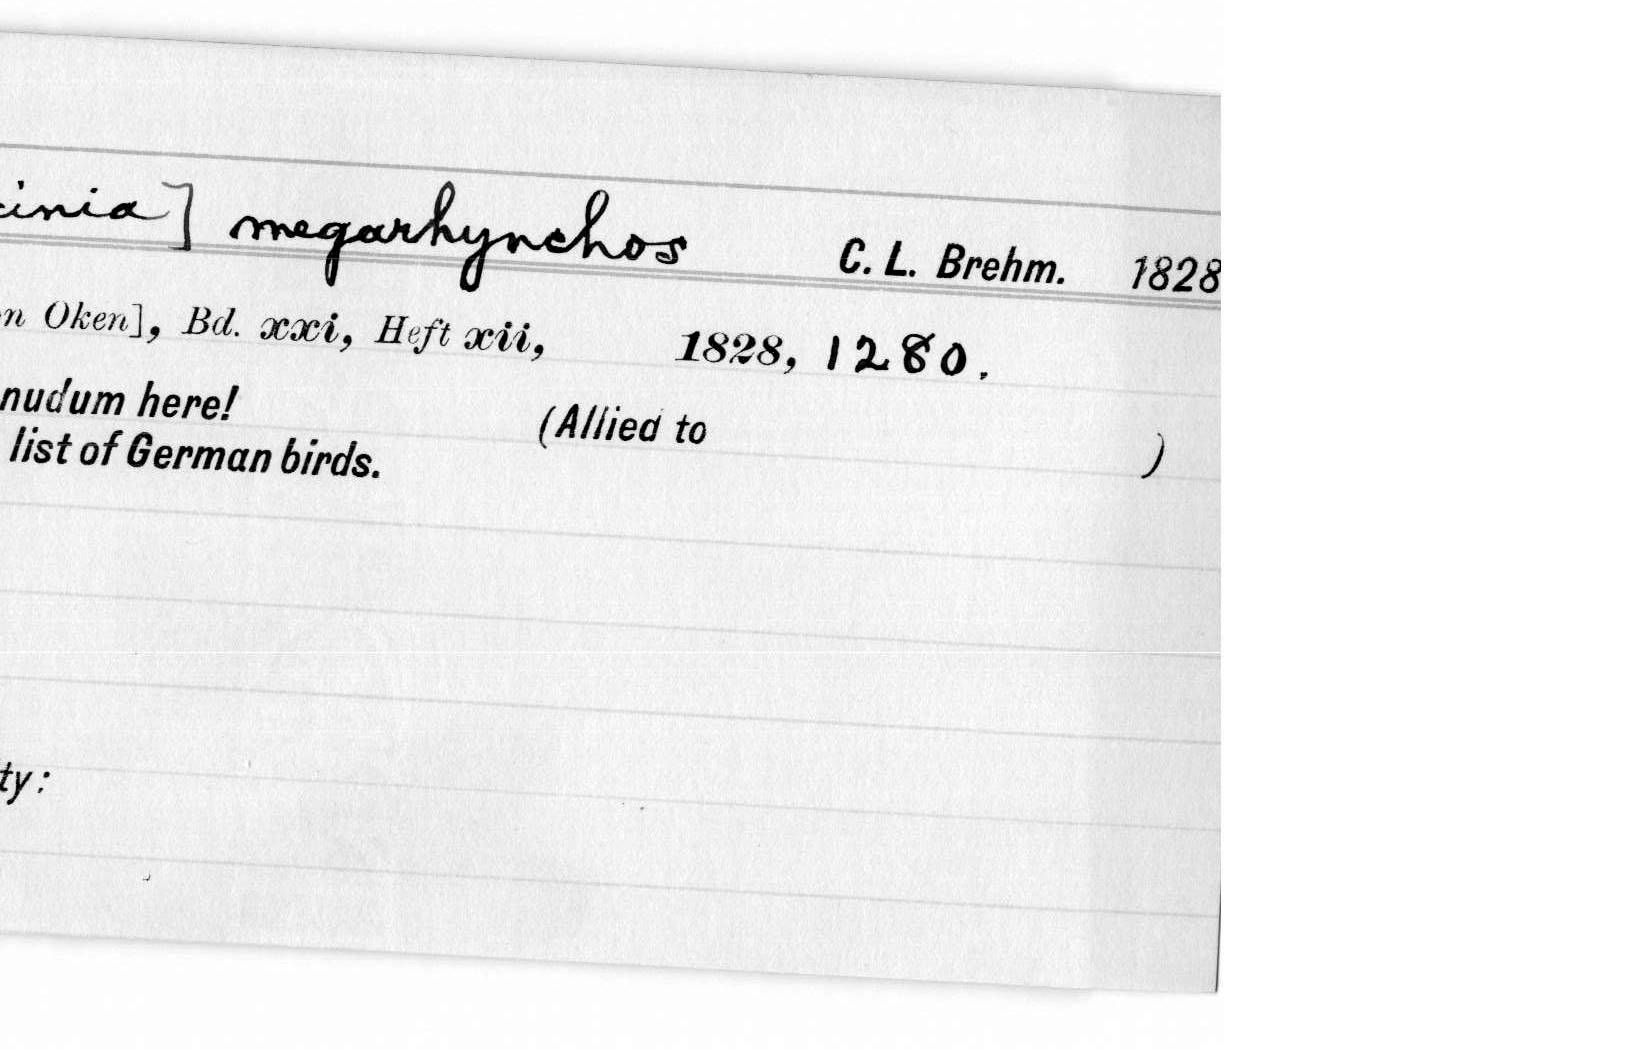 cinia] megarhynchos C. L. Brehm. 1828
n Oken], Bd. xxi, Heft xii, 1828, 1280.
nudum here! (Allied to )
list of German birds.
ty: